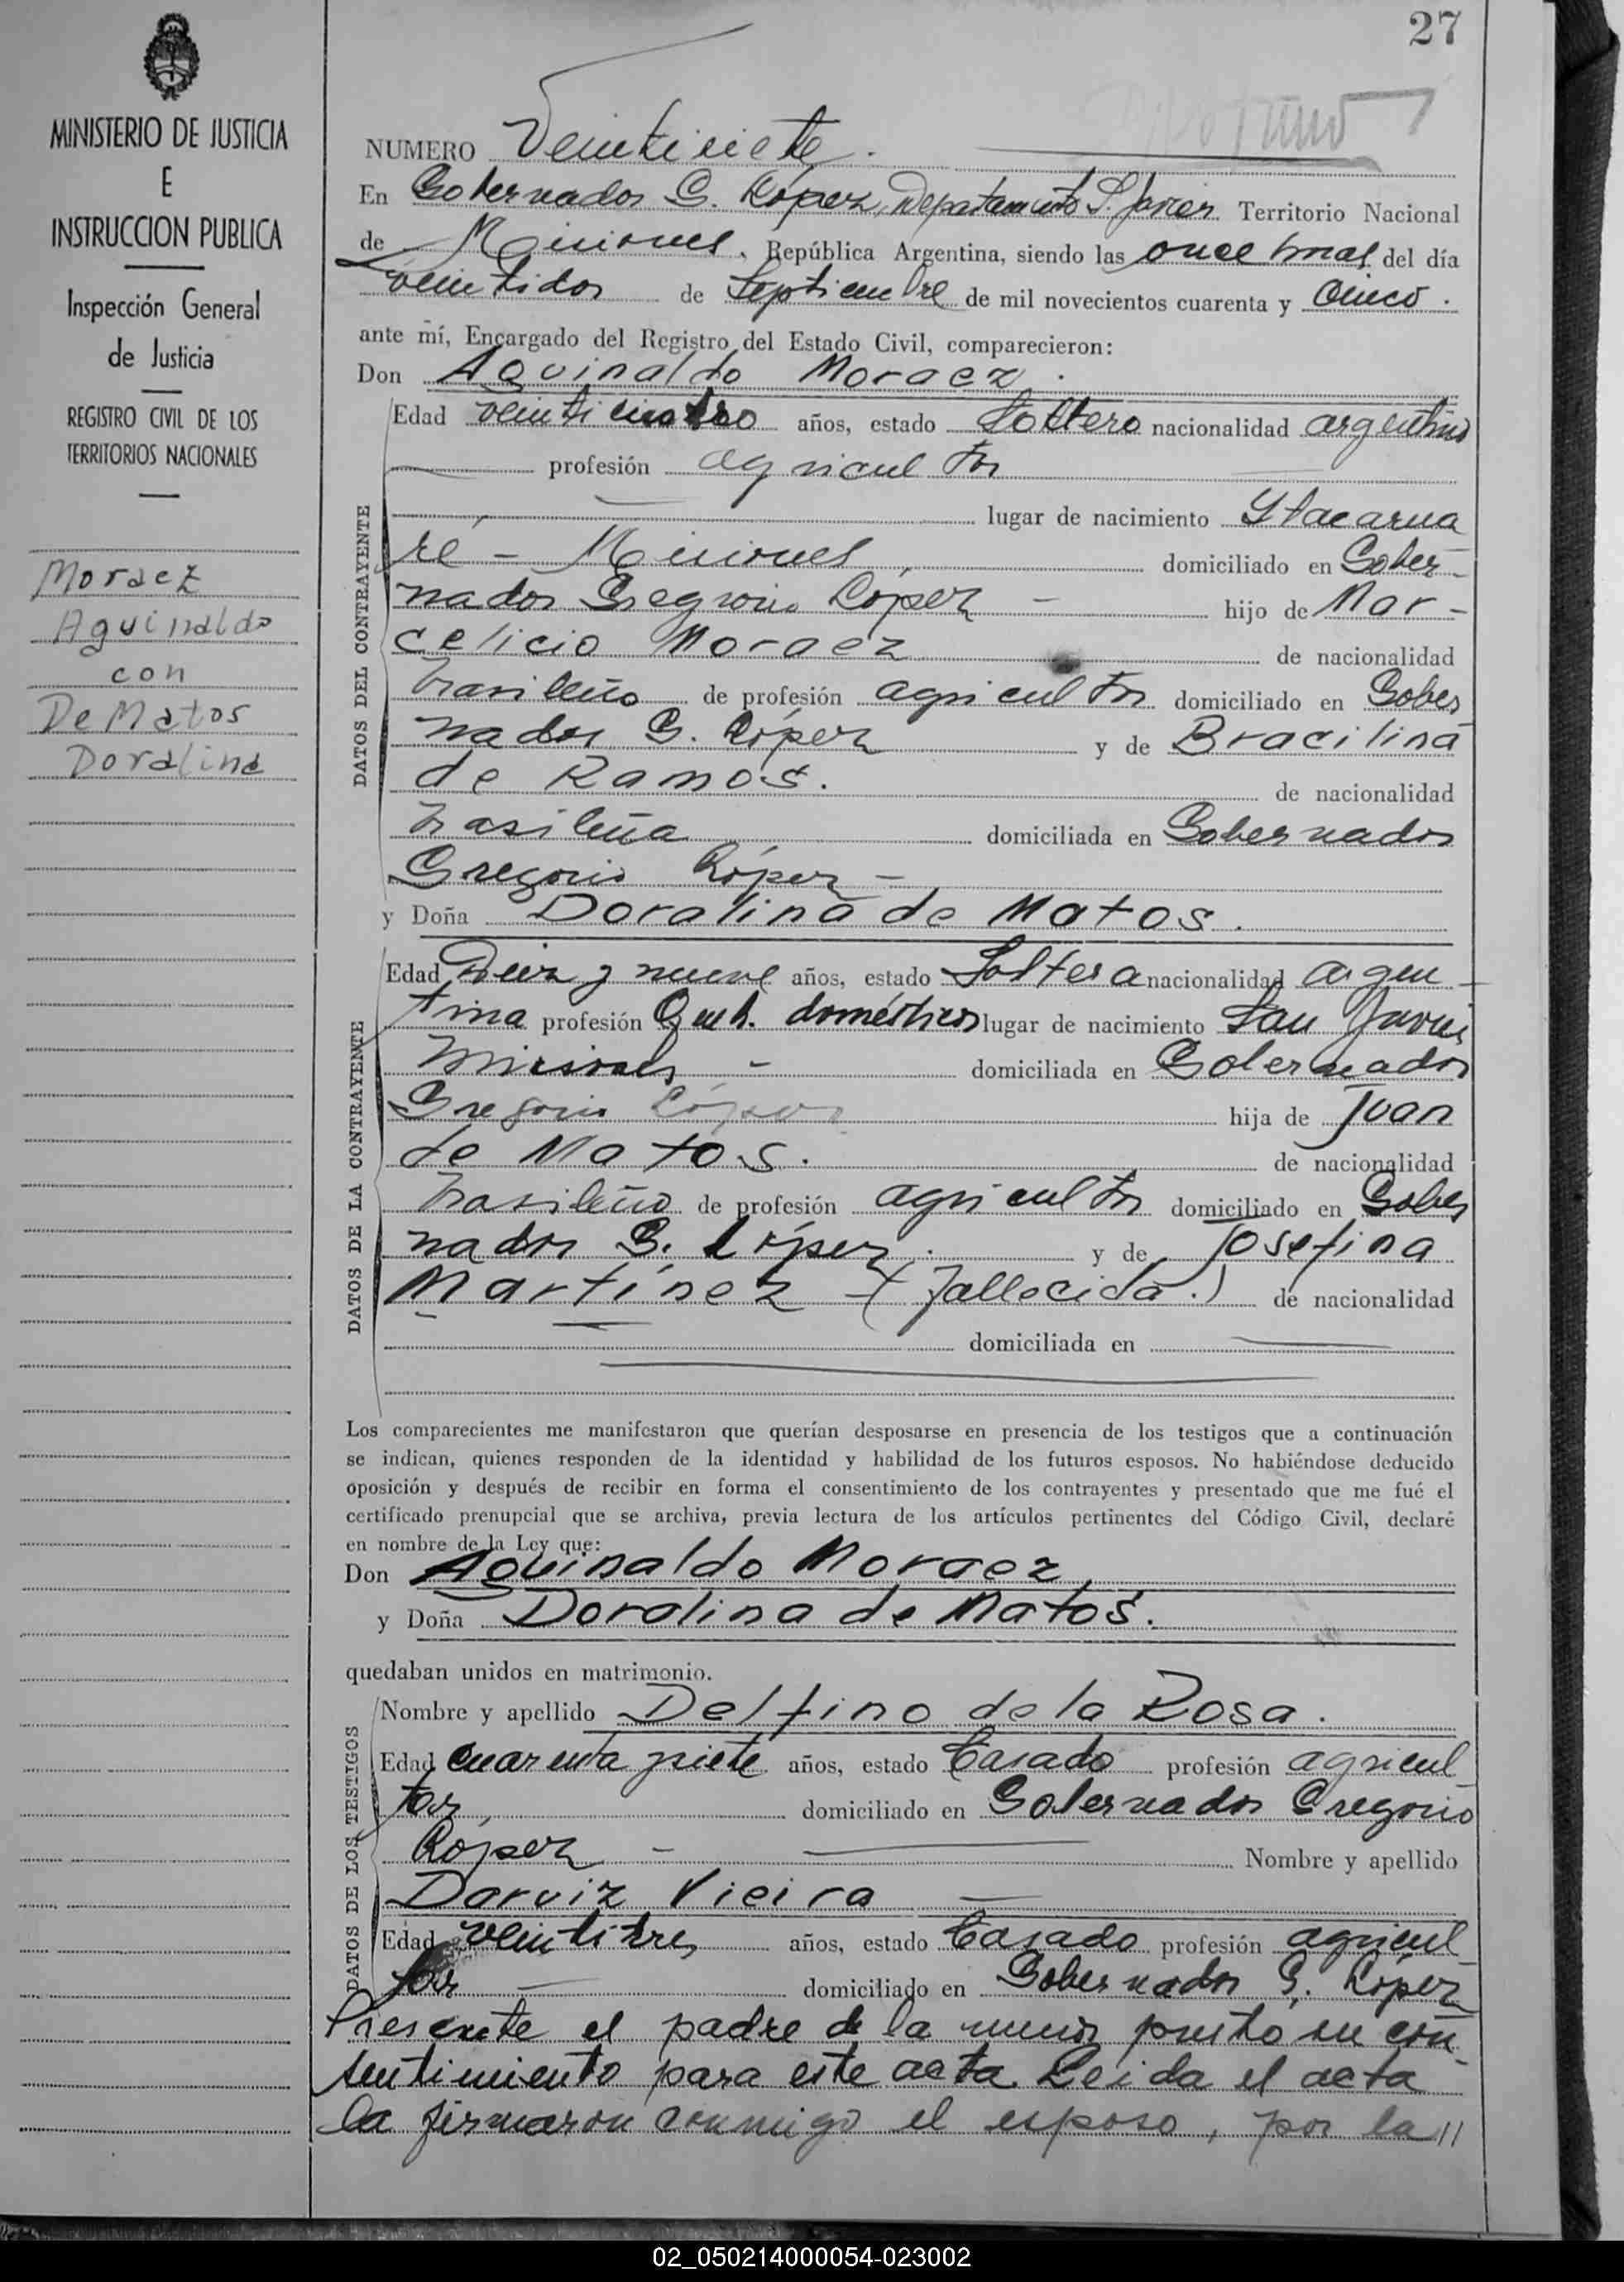 27
MINISTERIO DE JUSTICIA
E
INSTRUCCION PUBLICA
Inspección General
de Justicia
REGISTRO CIVIL DE LOS
TERRITORIOS NACIONALES
Moraez
Aguinaldo
con
De Matos
Doralina
NUMERO Veintisiete.
En Gobernador G. López, Departamento S. Javier Territorio Nacional
de Misiones, República Argentina, siendo las once horas del día
veintidos de Septiembre de mil novecientos cuarenta y Cinco.
ante mí, Encargado del Registro del Estado Civil, comparecieron:
Don Aguinaldo Moraez.
DATOS DEL CONTRAYENTE
Edad veinticuatro años, estado Soltero nacionalidad argentino
profesión agricultor
lugar de nacimiento Itacarua
ré - Misiones, domiciliado en Gober-
nador Gregorio López - hijo de Mar-
celicio Moraez de nacionalidad
brasileño de profesión agricultor domiciliado en Gober
nador G. López y de Bracilina
de Ramos. de nacionalidad
brasileña domiciliada en Gobernador
Gregorio López -
y Doña Doralina de Matos.
DATOS DE LA CONTRAYENTE
Edad Diez y nueve años, estado Soltera nacionalidad argen-
tina profesión Queh. domésticos lugar de nacimiento San Javier
Misiones - domiciliada en Gobernador
Gregorio López hija de Juan
de Matos. de nacionalidad
brasileño de profesión agricultor domiciliado en Gober
nador G. López. y de Josefina
Martínez - (fallecida.) de nacionalidad
domiciliada en
Los comparecientes me manifestaron que querían desposarse en presencia de los testigos que a continuación
se indican, quienes responden de la identidad y habilidad de los futuros esposos. No habiéndose deducido
oposición y después de recibir en forma el consentimiento de los contrayentes y presentado que me fué el
certificado prenupcial que se archiva, previa lectura de los artículos pertinentes del Código Civil, declaré
en nombre de la Ley que:
Don Aguinaldo Moraez,
y Doña Doralina de Matos.
quedaban unidos en matrimonio.
DATOS DE LOS TESTIGOS
Nombre y apellido Delfino de la Rosa.
Edad cuarenta y siete años, estado Casado profesión agricul-
tor, domiciliado en Gobernador Gregorio
López - Nombre y apellido
Darviz Vieira
Edad veintitres años, estado Casado profesión agricul-
tor domiciliado en Gobernador G. López
Presente el padre de la menor presto su con-
sentimiento para este acta. Leida el acta
la firmaron conmigo el esposo, por la //
02_050214000054-023002